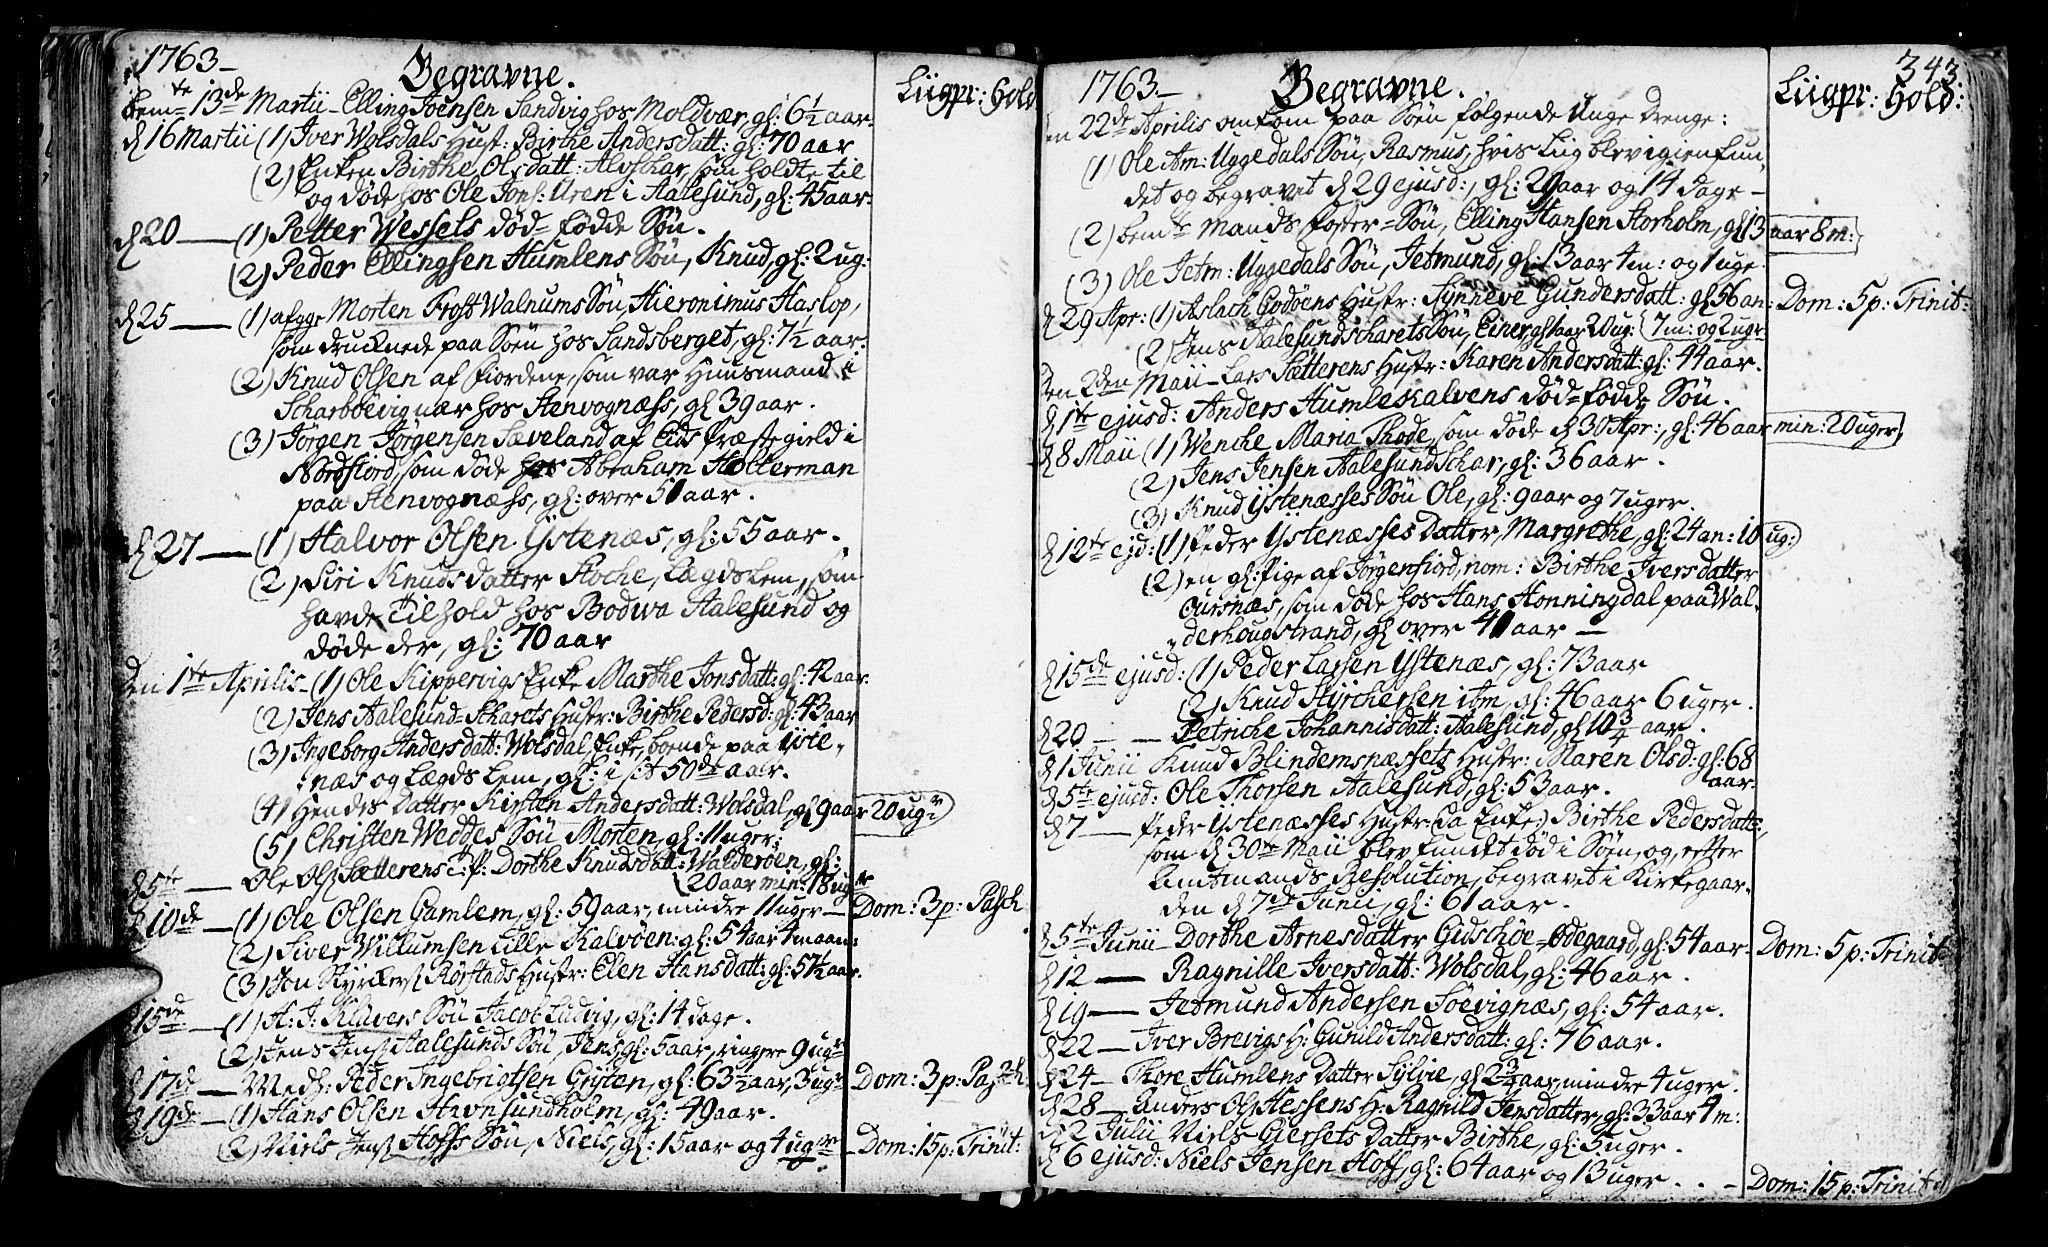 1763 –
Begravne.
Liigpr: Hold
bem: te 13de Martii – Elling Joensen Sandvig hos Moldvær, gl: 6½ aar.
d 16 Martii (1) Iver Wolsdals Hust: Birthe Andersdatt: gl: 70 aar
(2) Enken Birthe Olsdatt: Alvschar, som holdte til
og døde hos Ole Jons: Uren i Aalesund, gl: 45 aar.
d 20 — (1) Petter Wessels død=fødde Søn.
(2) Peder Ellingsen Humlens Søn, Knud, gl: 2 ug:
d 25 — (1) afgge Morten Frost Walnums Søn, Hieronimus Haslop,
som drucknede paa Søen hos Sandsberget, gl: 7½ aar.
(2) Knud Olsen af Fiordene, som var Huusmand i
Scharbøevig nær hos Stenvognæss, gl 39 aar.
(3) Jørgen Jørgensen Sæveland af Eids Præstegield i
Nordfiord, som døde hos Abraham Holterman
paa Stenvognæss, gl: over 50 aar.
d 27 — (1) Halvor Olsen Ystenæs, gl: 55 aar.
(2) Siri Knudsdatter Stoche, Lægdslem, som
havde Tilhold hos Bodwa Aalesund og
døde der, gl: 70 aar
Den 1te Aprilis – (1) Ole Kippervigs Enke Marthe Jonsdatt: gl: 42 aar.
(2) Jens Aalesund=Scharets Hustr: Birthe Pedersd: gl: 43 aar
(3) Ingeborg Andersdatt: Wolsdal, Enke, boende paa Yste-
næs og Lægdslem, gl: i sit 50de aar.
(4) Hendes Datter Kirsten Andersdatt: Wolsdal, gl 9 aar 20 ugr
(5) Christen Weddes Søn Morten, gl: 11 uger:
d 5te — Ole Ols Sætterens P: Dorthe Knudsdatt: Walderøen, gl:
20 aar min: 18 ugr
d 10de — (1) Ole Olsen Gamlem, gl: 59 aar, mindre 11 uger — Dom: 3 p: Pasch
(2) Siver Willumsen Lille Kalvøen: gl: 54 aar 4 maan:
(3) Jon Styrkers Rørstads Hustr: Elen Hansdatt: gl: 51½ aar.
d 15de — (1) H: J: Klüvers Søn Jacob Ludvig, gl: 14 dage.
(2) Jens Jens Aalesunds Søn, Jens, gl: 5 aar, ringere 9 ugr
d 17de — Medh: Peder Ingebrigtsen Gryten, gl: 63½ aar, 3 ugr Dom: 3 p: Pasch.
d 19de — (1) Hans Olsen Hevnsundholm, gl: 49 aar.
(2) Niels Jens Hoffs Søn, Niels, gl: 15 aar og 4 ugr – Dom: 15 p: Trinit:
1763 –
Begravne.
343.
Liigpr: Hold:
den 22de Aprilis omkom paa Søen følgende Unge Drenge:
(1) Ole Am: Uggedals Søn, Rasmus, hvis Liig blev igienfun-
det og begravet d 29 ejusd:, gl: 20 aar og 14 dage –
(2) bemte Mands Foster=Søn, Elling Hansen Storholm, gl 13 aar 8 m:
(3) Ole Jetm: Uggedals Søn, Jetmund, gl: 13 aar 4 m: og 1 uge.
d 29 Apr: (1) Aslach Godøens Hustr: Synneve Gundersdatt: gl 56 an: Dom: 5 p: Trinit:
(2) Jens Aalesundscharets Søn, Einer, gl 7 m: og 2 ugr
Den 2den Maii – Lars Sætterens Hustr: Karen Andersdatt: gl: 44 aar.
d 1te ejusd: Anders Humlekalvens død=fødde Søn.
d 8 Maii (1) Wenche Maria Thode, som døde d 30 Apr:, gl: 46 aar min: 20 uger,
(2) Jens Jensen Aalesundschar, gl: 36 aar.
(3) Knud Ystenæsses Søn Ole, gl: 9 aar og 7 uger.
d 12te ejd: (1) Peder Ystenæsses Datter, Margrethe, gl: 24 an: 10 ug:
(2) en gl: Pige af Jørgenfiord, nom: Birthe Iversdatter
Oursnæs, som døde hos Hans Honningdal paa Wal-
derhougstrand, gl over 40 aar –
d 15de ejusd: (1) Peder Larsen Ystenæs, gl: 73 aar
(2) Knud Styrchersen ibm, gl: 46 aar 6 uger.
d 20 – — Petriche Johannisdatt: Aalesund, gl 10¾ aar.
d 1 Junii Knud Blindemsnæssets Hustr: Maren Olsd: gl: 68
aar.
d 5te ejusd: Ole Thorsen Aalesund, gl: 53 aar.
d 7 — Peder Ystenæsses Hustr: (da Enke) Birthe Pedersdatt:,
som d 30te Maii blev fundet død i Søen, og, efter
Amtmands Resolution, begravet i Kirkegaar-
den d 7de Junii, gl: 61 aar.
d 5te Junii – Dorthe Arnesdatter Gidschøe=Ødegaard, gl: 54 aar – Dom: 5 p: Trinit:
d 12 — Ragnille Iversdatt: Wolsdal, gl: 46 aar.
d 19 — Jetmund Andersen Søevignæs, gl: 54 aar.
d 22 — Iver Brevigs H: Gunild Andersdatt: gl: 76 aar.
d 24 — Thore Humlens Datter Sylvie, gl 2¾ aar, mindre 4 uger.
d 28 — Anders Ols Hessens H: Ragnild Jensdatter, gl: 33 aar 4 m:
d 2 Julii Niels Giersets Datter Birthe, gl: 5 uger.
d 6 ejusd: Niels Jensen Hoff, gl: 64 aar og 13 uger. . – Dom: 15 p: Trinit: